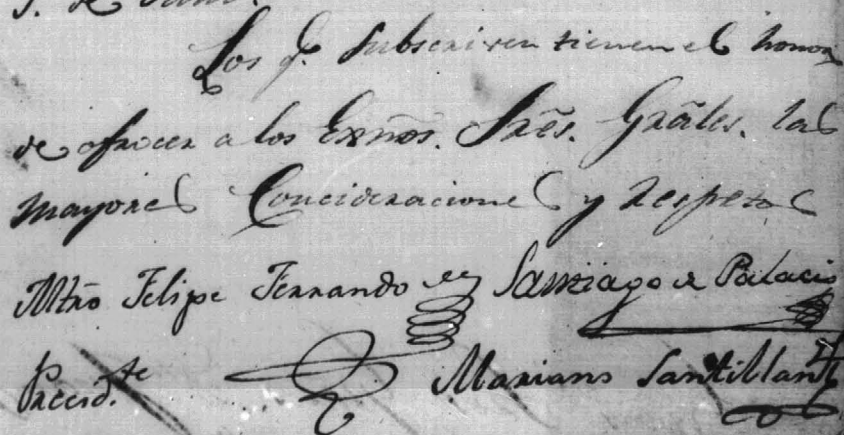 Los q.e Subscriven tienen el honor
de ofrocer a los Exmõs. Srẽs. Grãles. las
mayores Concideraciones y respetos
Mtrõ Felipe Ferrando Santiago de Palacio
Precid.te Mariano Santillan